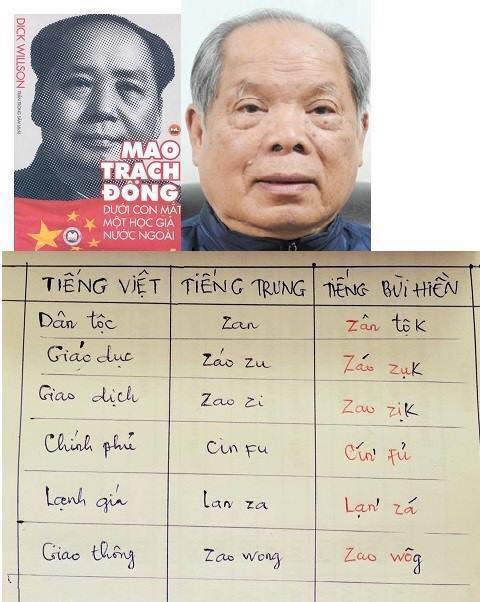 DICK WILLSON
MAO
TRẠCH
ĐÔNG
DƯỚI CON MẮT
MỘT HỌC GIẢ
NƯỚC NGOÀI
TIẾNG VIỆT TIẾNG TRUNG TIẾNG BÙI HIỀN
Dân tộc Zan Zân tộk
Giáo dục Záo zu Záo zụk
Giao dịch Zao zi Zao zịk
Chính phủ Cin Fu Cín' Fủ
Lạnh giá Lan za Lạn' zá
Giao thông Zao wong Zao wôg